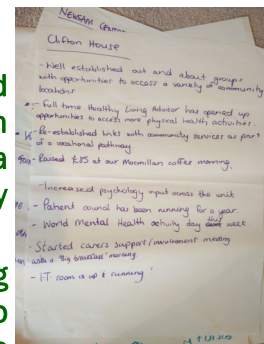 NEWSAM Centre
Clifton House
- Well established out and about groups
with opportunities to access a variety of community
locations
- Full time Healthy Living Advisor has opened up
opportunities to access more physical health activities.
- Re-established links with community services as part
of a vocational pathway
- Raised £85 at our Macmillan coffee morning.
- Increased psychology input across the unit
- Patient council has been running for a year
- World Mental Health activity day this week
- Started carers support/involvement meeting
with a 'Big breakfast' morning
- I.T room is up & running